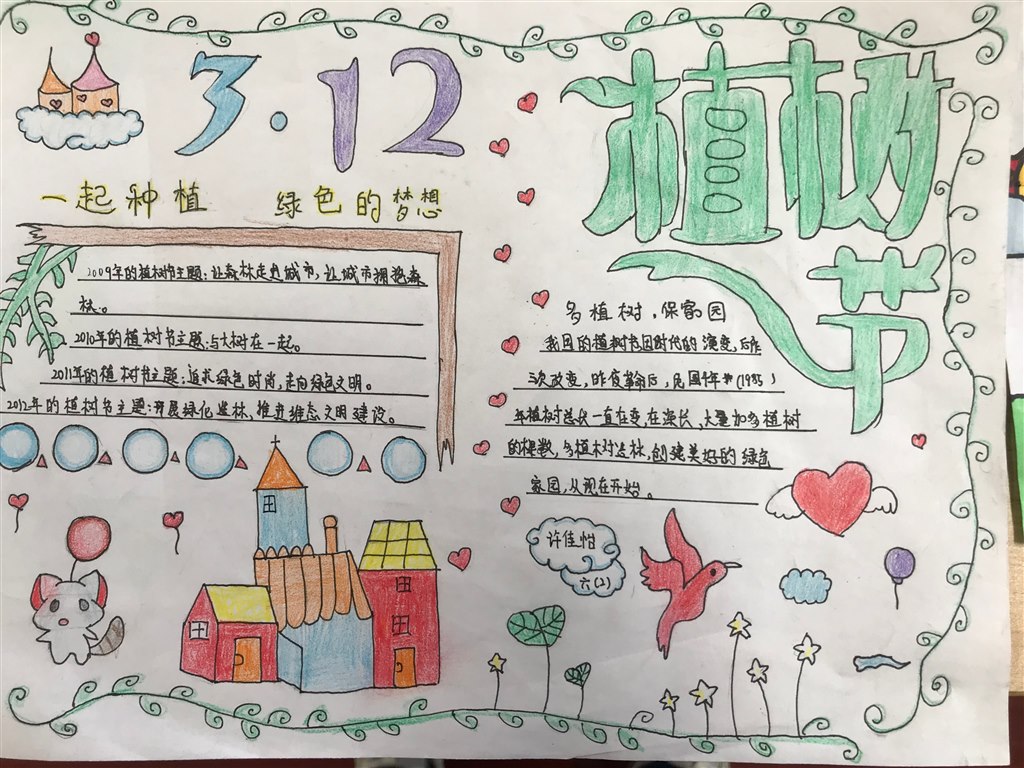 3.12
植树节
一起种植 绿色的梦想
2009年的植树节主题:让森林走进城市,让城市拥抱森
林。
2010年的植树节主题:与大树在一起。
2011年的植树节主题:追求绿色时尚,走向绿色文明。
2012年的植树节主题:开展绿化造林,推进维态文明建设。
多植树,保家园
我国的植树节因时代的演变,
三次改变,
年植树总状一直在变,在漫长,大量加多植树
的棵数,多植树造林,创建美好的绿色
家园,从现在开始。
许佳怡
六(2)